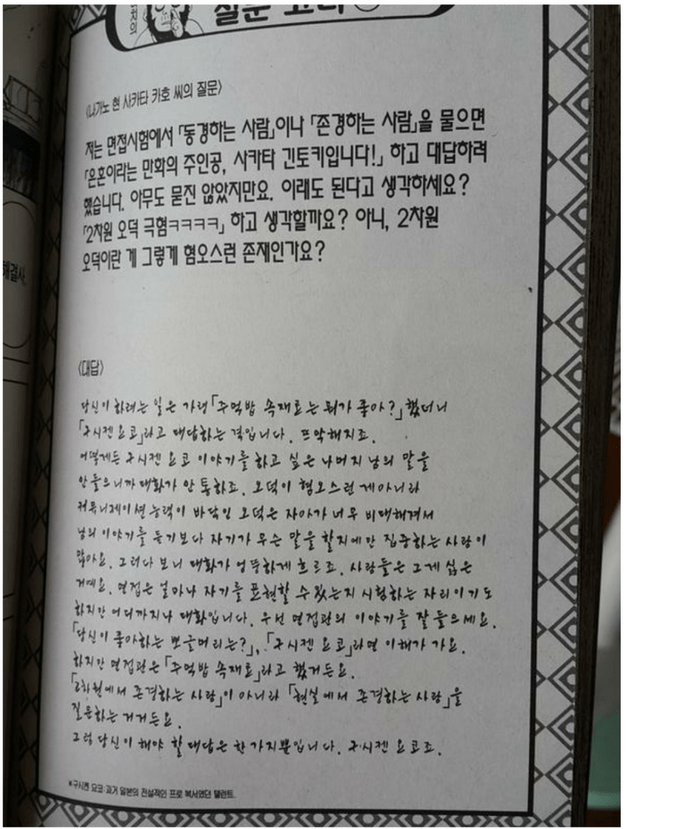 질문 코너
<나가노 현 사카타 카호 씨의 질문>
저는 면접시험에서 「동경하는 사람」이나 「존경하는 사람」을 물으면
「은혼이라는 만화의 주인공, 사카타 긴토키입니다!」 하고 대답하려
했습니다. 아무도 묻진 않았지만요. 이래도 된다고 생각하세요?
「2차원 오덕 극혐ㅋㅋㅋㅋ」 하고 생각할까요? 아니, 2차원
오덕이란 게 그렇게 혐오스런 존재인가요?
<대답>
당신이 하려는 일은 가령 「주먹밥 속재료는 뭐가 좋아?」 했더니
「구시켄 요코」라고 대답하는 격입니다. 뜨악해지죠.
어떻게든 구시켄 요코 이야기를 하고 싶은 나머지 남의 말을
안 들으니까 대화가 안 통하죠. 오덕이 혐오스런 게 아니라
커뮤니케이션 능력이 바닥인 오덕은 자아가 너무 비대해져서
남의 이야기를 듣기보다 자기가 무슨 말을 할지에만 집중하는 사람이
많아요. 그러다 보니 대화가 엉뚱하게 흐르죠. 사람들은 그게 싫은
거예요. 면접은 얼마나 자기를 표현할 수 있는지 시험하는 자리이기도
하지만 어디까지나 대화입니다. 우선 면접관의 이야기를 잘 들으세요.
「당신이 좋아하는 뽀글머리는?」, 「구시켄 요코」라면 이해가 가요.
하지만 면접관은 「주먹밥 속재료」라고 했거든요.
「2차원에서 존경하는 사람」이 아니라 「현실에서 존경하는 사람」을
질문하는 거거든요.
그럼 당신이 해야 할 대답은 한 가지뿐입니다. 구시켄 요코죠.
*구시켄 요코: 과거 일본의 전설적인 프로 복서였던 탤런트.
해결사